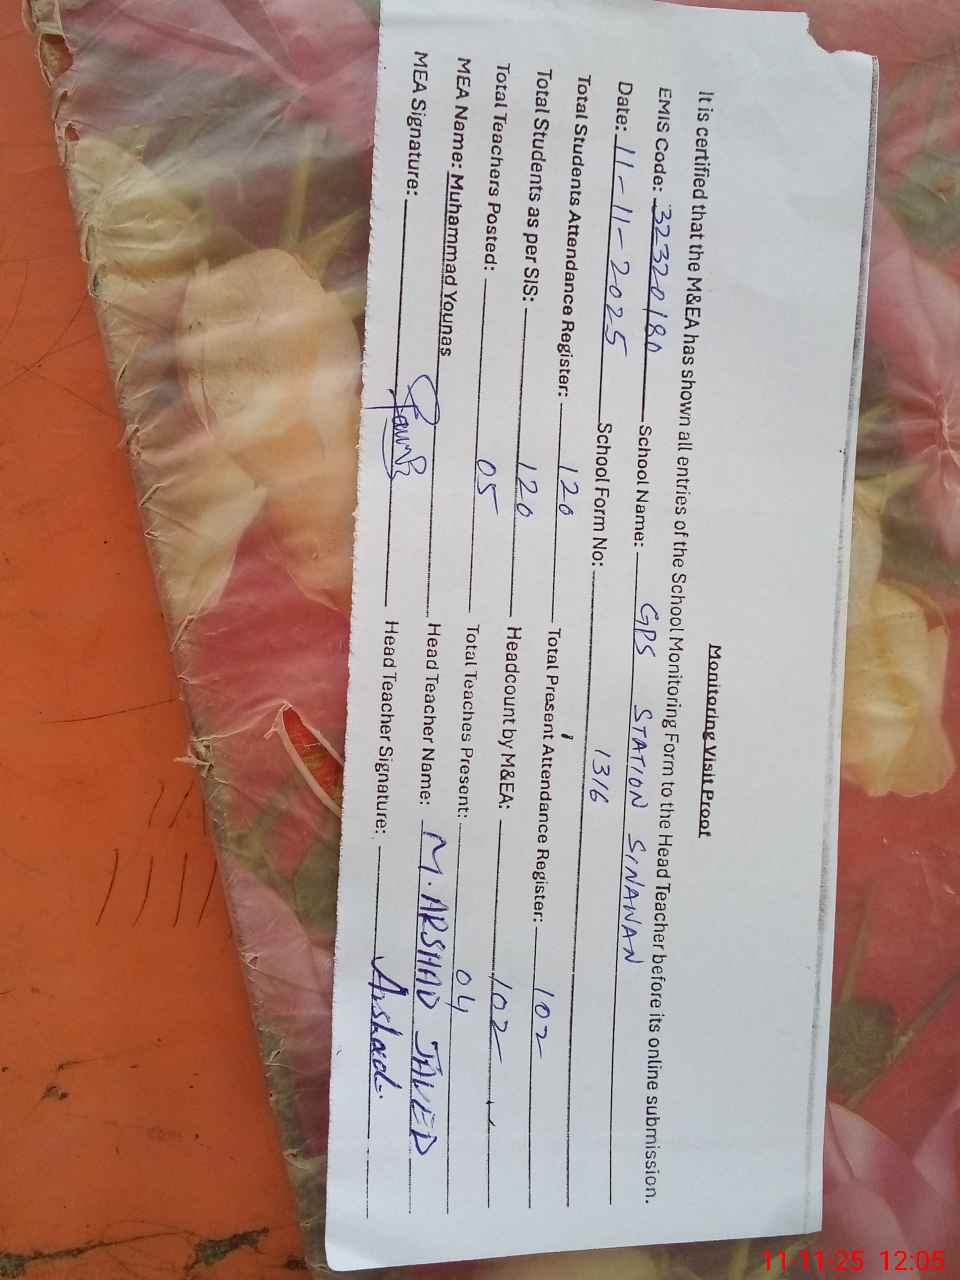 Monitoring Visit Proof
It is certified that the M&EA has shown all entries of the School Monitoring Form to the Head Teacher before its online submission.
EMIS Code: 32320180 School Name: GPS STATION SINAWAN
Date: 11-11-2025 School Form No: 1316
Total Students Attendance Register: 120 Total Present Attendance Register: 102
Total Students as per SIS: 120 Headcount by M&EA: 102
Total Teachers Posted: 05 Total Teaches Present: 04
MEA Name: Muhammad Younas Head Teacher Name: M. ARSHAD JAVED
MEA Signature: Head Teacher Signature: Arshad
11-11-25 12:05